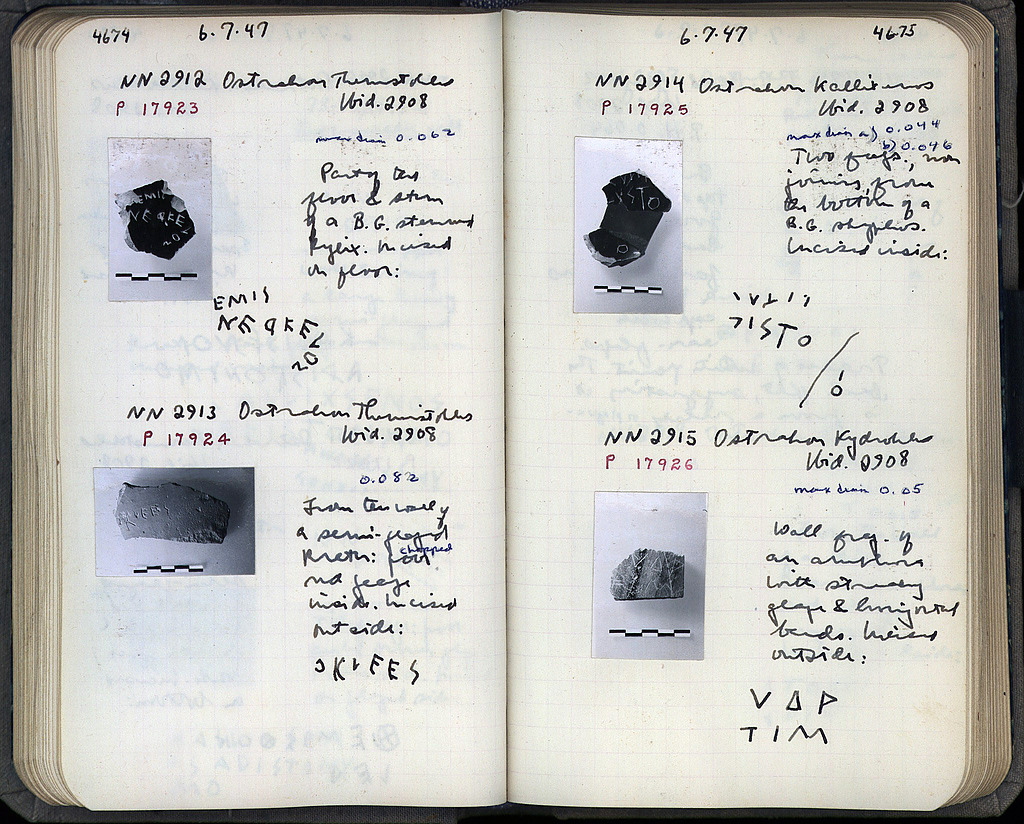 4674 6.7.47
NN 2912 Ostrakon Themistokles
P 17923 Ibid. 2908
max dim 0.062
Part of the
floor & stem
of a B.G. stemmed
kylix. Incised
on floor:
EMIS
NEOKLE
ΣΟΙ
NN 2913 Ostrakon Themistokles
P 17924 Ibid. 2908
0.082
From the wall of
a semi-glazed
krater: poor
chipped
red glaze
inside. Incised
outside:
OKLEES
6.7.47 4675
NN 2914 Ostrakon Kallixenos
P 17925 Ibid. 2908
max dim a) 0.044
b) 0.046
Two frags., non
joining, from
the bottom of a
B.G. skyphos.
Incised inside:
ISTO
O
NN 2915 Ostrakon Hydrokles
P 17926 Ibid. 2908
max dim 0.05
Wall frag. of
an amphora
with streaky
glaze & horizontal
bands. Incised
outside:
V Δ P
TIM